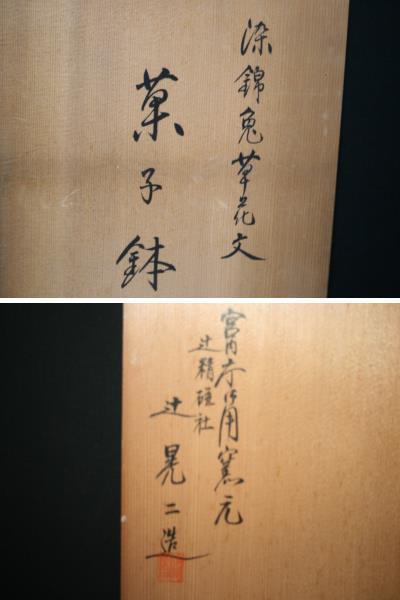 染錦兎草花文
菓子鉢
宮内庁御用窯元
辻精磁社
辻晃二造